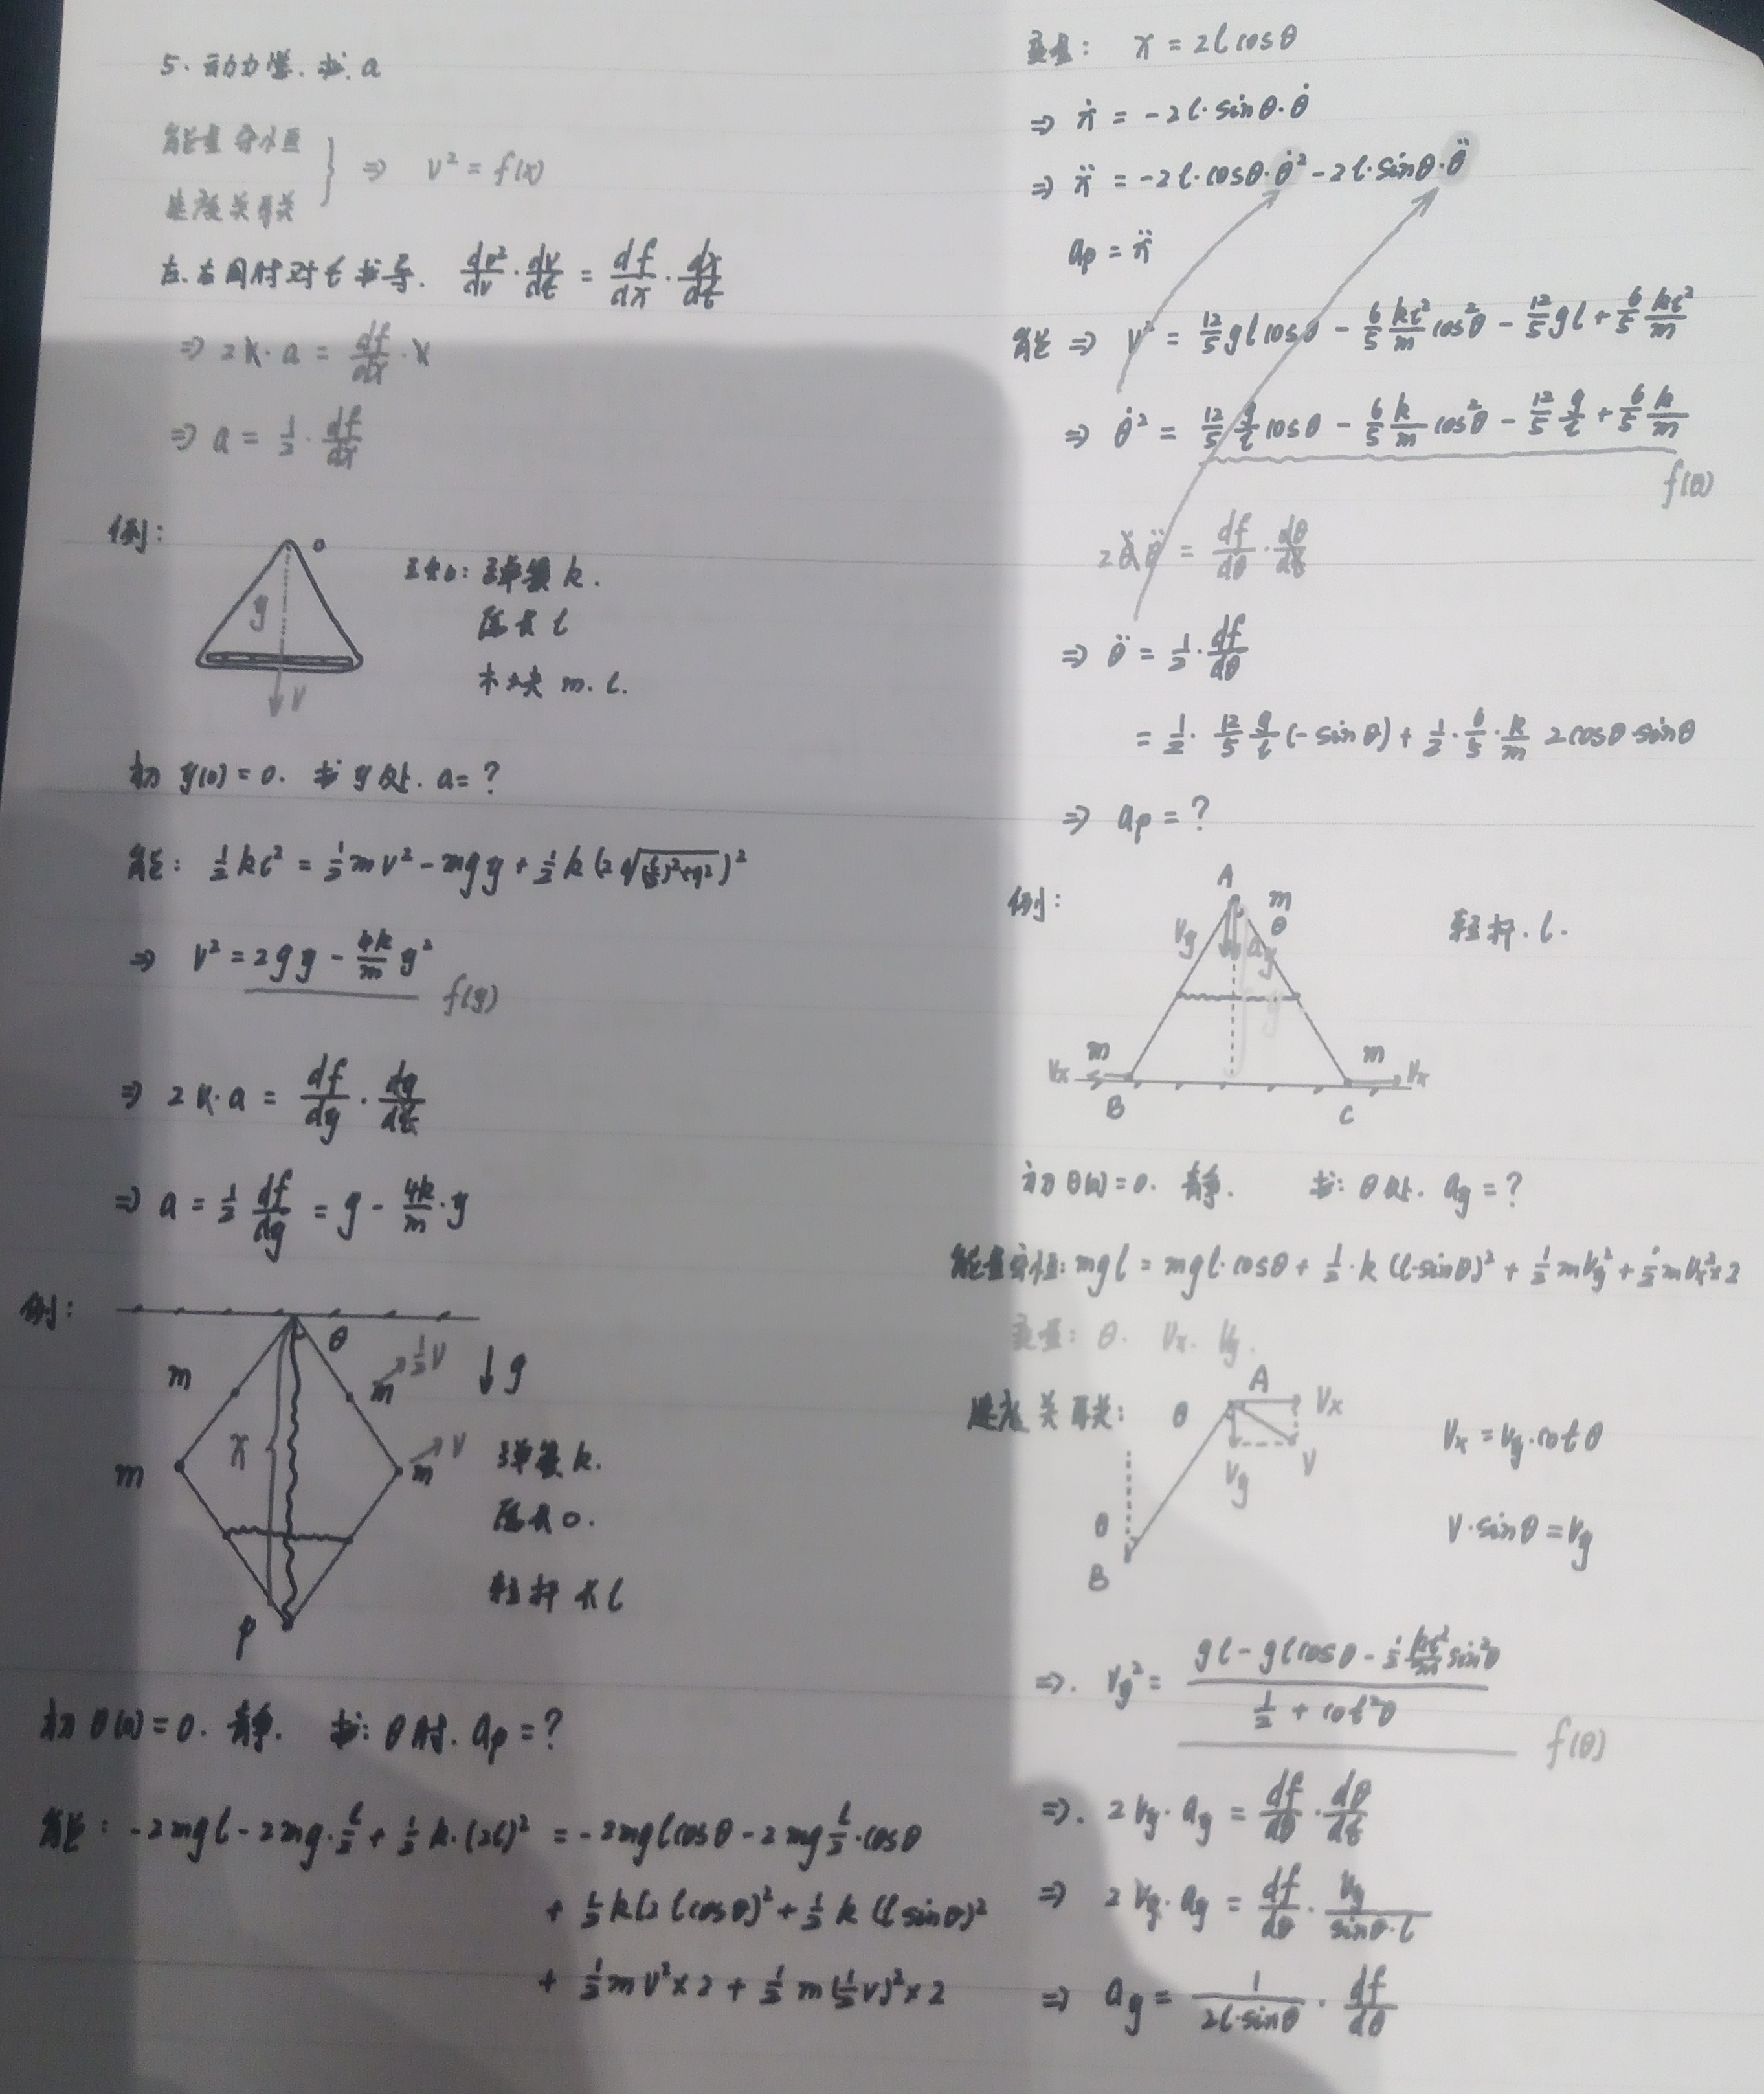 5. 动力学. 求. a
能量守恒
速度关联 } ⇒ v² = f(x)
左.右同时对t求导. dv²/dv · dv/dt = df/dx · dx/dt
⇒ 2v·a = df/dx · v
⇒ a = 1/2 · df/dx
例:
o
y
v
已知: 弹簧 k.
原长 l
木块 m. l.
初 y(0) = 0. 求 y处. a = ?
能: 1/2 kl² = 1/2 mv² - mgy + 1/2 k(2√((l/2)²+y²))²
⇒ v² = 2gy - 4k/m y²
f(y)
⇒ 2v·a = df/dy · dy/dt
⇒ a = 1/2 df/dy = g - 4k/m · y
例:
θ
m
m
1/2 v
↓g
x
m
m
v
P
弹簧 k.
原长 0.
轻杆长 l
初 θ(0) = 0. 静. 求: θ时. ap = ?
能: -2mgl - 2mg·l/2 + 1/2 k·(2l)² = -2mgl cosθ - 2mg l/2·cosθ
+ 1/2 k(2l cosθ)² + 1/2 k(l sinθ)²
+ 1/2 mv²×2 + 1/2 m(1/2 v)²×2
变量: x = 2l cosθ
⇒ ẋ = -2l·sinθ·θ̇
⇒ ẍ = -2l·cosθ·θ̇² - 2l·sinθ·θ̈
ap = ẍ
能 ⇒ v² = 12/5 gl cosθ - 6/5 kl²/m cos²θ - 12/5 gl + 6/5 kl²/m
⇒ θ̇² = 12/5 g/l cosθ - 6/5 k/m cos²θ - 12/5 g/l + 6/5 k/m
f(θ)
2θ̇θ̈ = df/dθ · dθ/dt
⇒ θ̈ = 1/2 · df/dθ
= 1/2 · 12/5 g/l (-sinθ) + 1/2 · 6/5 · k/m 2cosθ·sinθ
⇒ ap = ?
例:
A
m
θ
Vy
ay
y
m
m
Vx
Vx
B
C
轻杆. l.
初 θ(0) = 0. 静. 求: θ处. ay = ?
能量守恒: mgl = mgl·cosθ + 1/2·k (l·sinθ)² + 1/2 mVy² + 1/2 mVx²×2
变量: θ. Vx. Vy.
速度关联:
θ
A
Vx
Vy
V
θ
B
Vx = Vy·cotθ
V·sinθ = Vy
⇒. Vy² = (gl - gl cosθ - 1/2 kl²/m sin²θ)/(1/2 + cot²θ)
f(θ)
⇒. 2Vy·ay = df/dθ · dθ/dt
⇒ 2Vy·ay = df/dθ · Vy/(sinθ·l)
⇒ ay = 1/(2l·sinθ) · df/dθ